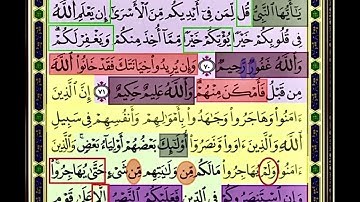 يَـٰٓأَيُّهَا ٱلنَّبِىُّ قُل لِّمَن فِىٓ أَيْدِيكُم مِّنَ ٱلْأَسْرَىٰٓ إِن يَعْلَمِ ٱللَّهُ
فِى قُلُوبِكُمْ خَيْرًا يُؤْتِكُمْ خَيْرًا مِّمَّآ أُخِذَ مِنكُمْ وَيَغْفِرْ لَكُمْ
وَٱللَّهُ غَفُورٌ رَّحِيمٌ ٧٠ وَإِن يُرِيدُوا۟ خِيَانَتَكَ فَقَدْ خَانُوا۟ ٱللَّهَ
مِن قَبْلُ فَأَمْكَنَ مِنْهُمْ وَٱللَّهُ عَلِيمٌ حَكِيمٌ ٧١ إِنَّ ٱلَّذِينَ
ءَامَنُوا۟ وَهَاجَرُوا۟ وَجَـٰهَدُوا۟ بِأَمْوَٰلِهِمْ وَأَنفُسِهِمْ فِى سَبِيلِ
ٱللَّهِ وَٱلَّذِينَ ءَاوَوا۟ وَّنَصَرُوٓا۟ أُو۟لَـٰٓئِكَ بَعْضُهُمْ أَوْلِيَآءُ بَعْضٍ وَٱلَّذِينَ
ءَامَنُوا۟ وَلَمْ يُهَاجِرُوا۟ مَا لَكُم مِّن وَلَـٰيَتِهِم مِّن شَىْءٍ حَتَّىٰ يُهَاجِرُوا۟
وَإِنِ ٱسْتَنصَرُوكُمْ فِى ٱلدِّينِ فَعَلَيْكُمُ ٱلنَّصْرُ إِلَّا عَلَىٰ قَوْمٍ